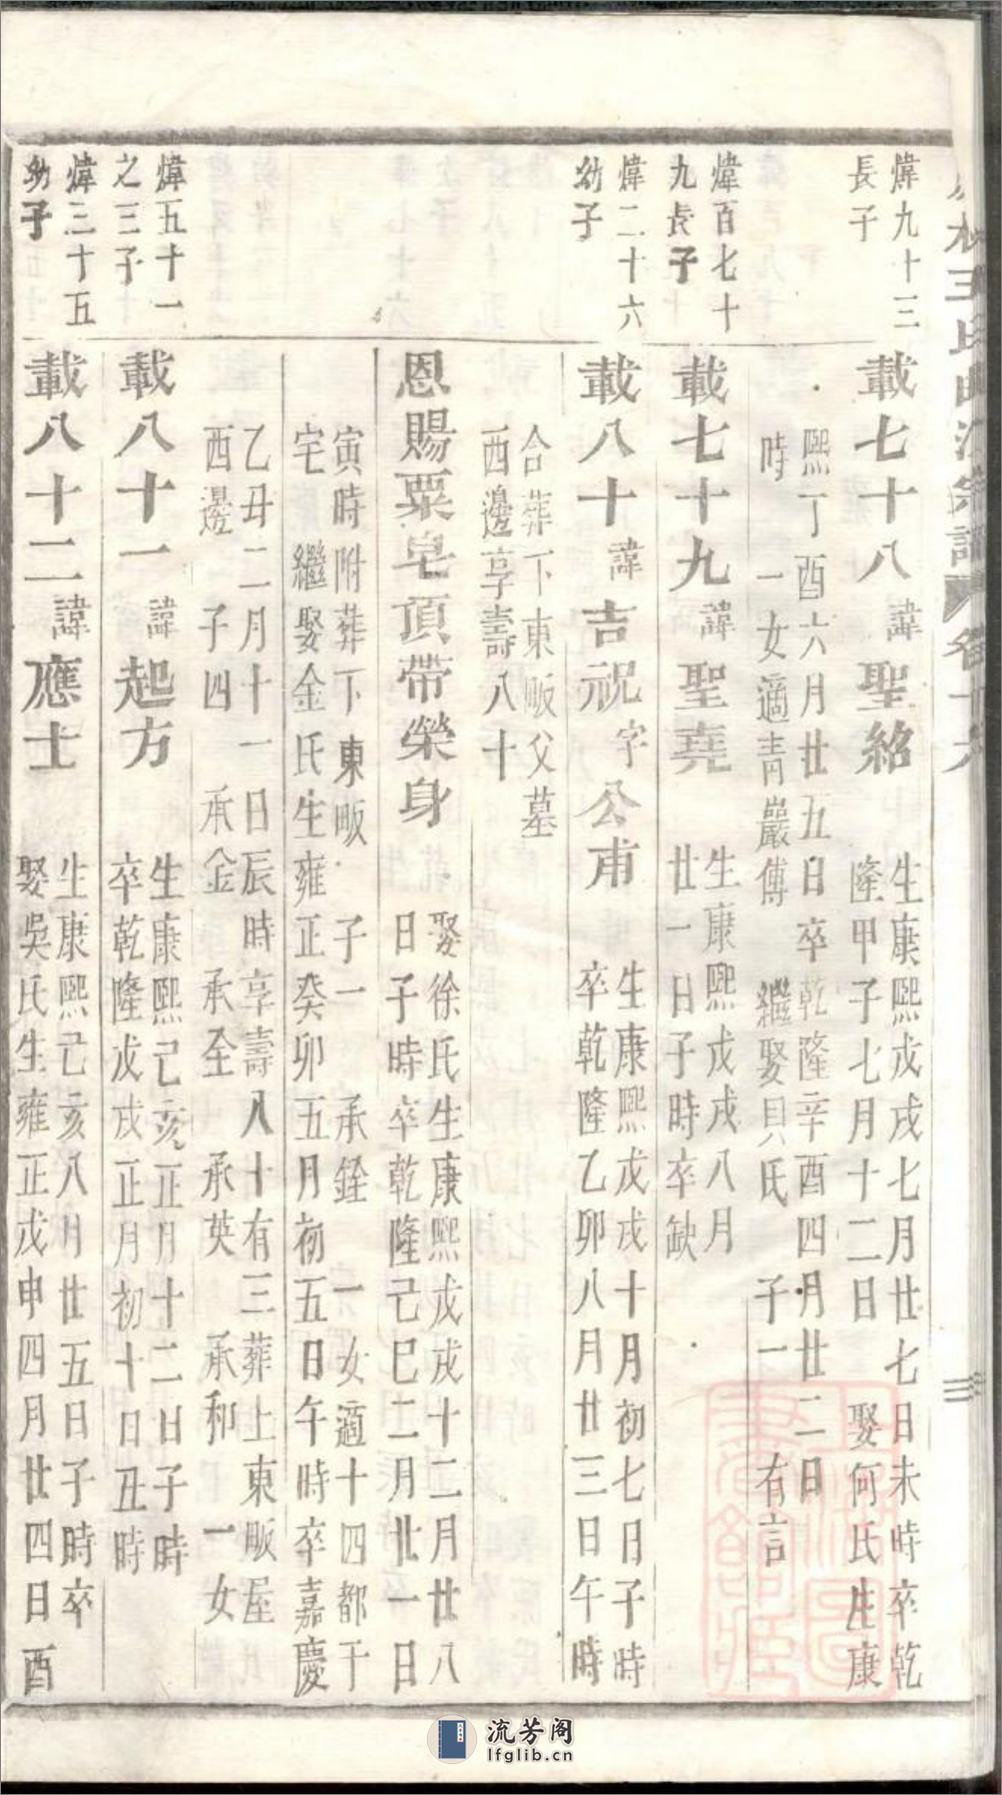 氏
宗譜
卷十六
三
煒九十三
長子
載七十八諱聖紹
生康熙戊戌七月廿七日未時卒乾
隆甲子七月十二日 娶何氏生康
熙丁酉六月廿五日卒乾隆辛酉四月廿二日
時 一女適青巖傅 繼娶貝氏 子一 有言
煒百七十
九長子
載七十九諱聖堯
生康熙戊戌八月
廿一日子時卒缺
煒二十六
幼子
載八十諱吉祝字公甫
生康熙戊戌十月初七日子時
卒乾隆乙卯八月廿三日午時
合葬下東畈父墓
西邊享壽八十
恩賜粟皂頂帶榮身
娶徐氏生康熙戊戌十二月廿八
日子時卒乾隆己巳二月廿一日
寅時附葬下東畈 子一 承銓 一女適十四都于
宅 繼娶金氏生雍正癸卯五月初五日午時卒嘉慶
乙丑二月十一日辰時享壽八十有三葬上東畈屋
西邊 子四 承金 承全 承英 承和 一女
煒五十一
之三子
載八十一諱起方
生康熙己亥正月十二日子時
卒乾隆戊戌正月初十日丑時
煒三十五
幼子
載八十二諱應士
生康熙己亥八月廿五日子時卒
娶吳氏生雍正戊申四月廿四日酉
流芳阁
lfglib.cn